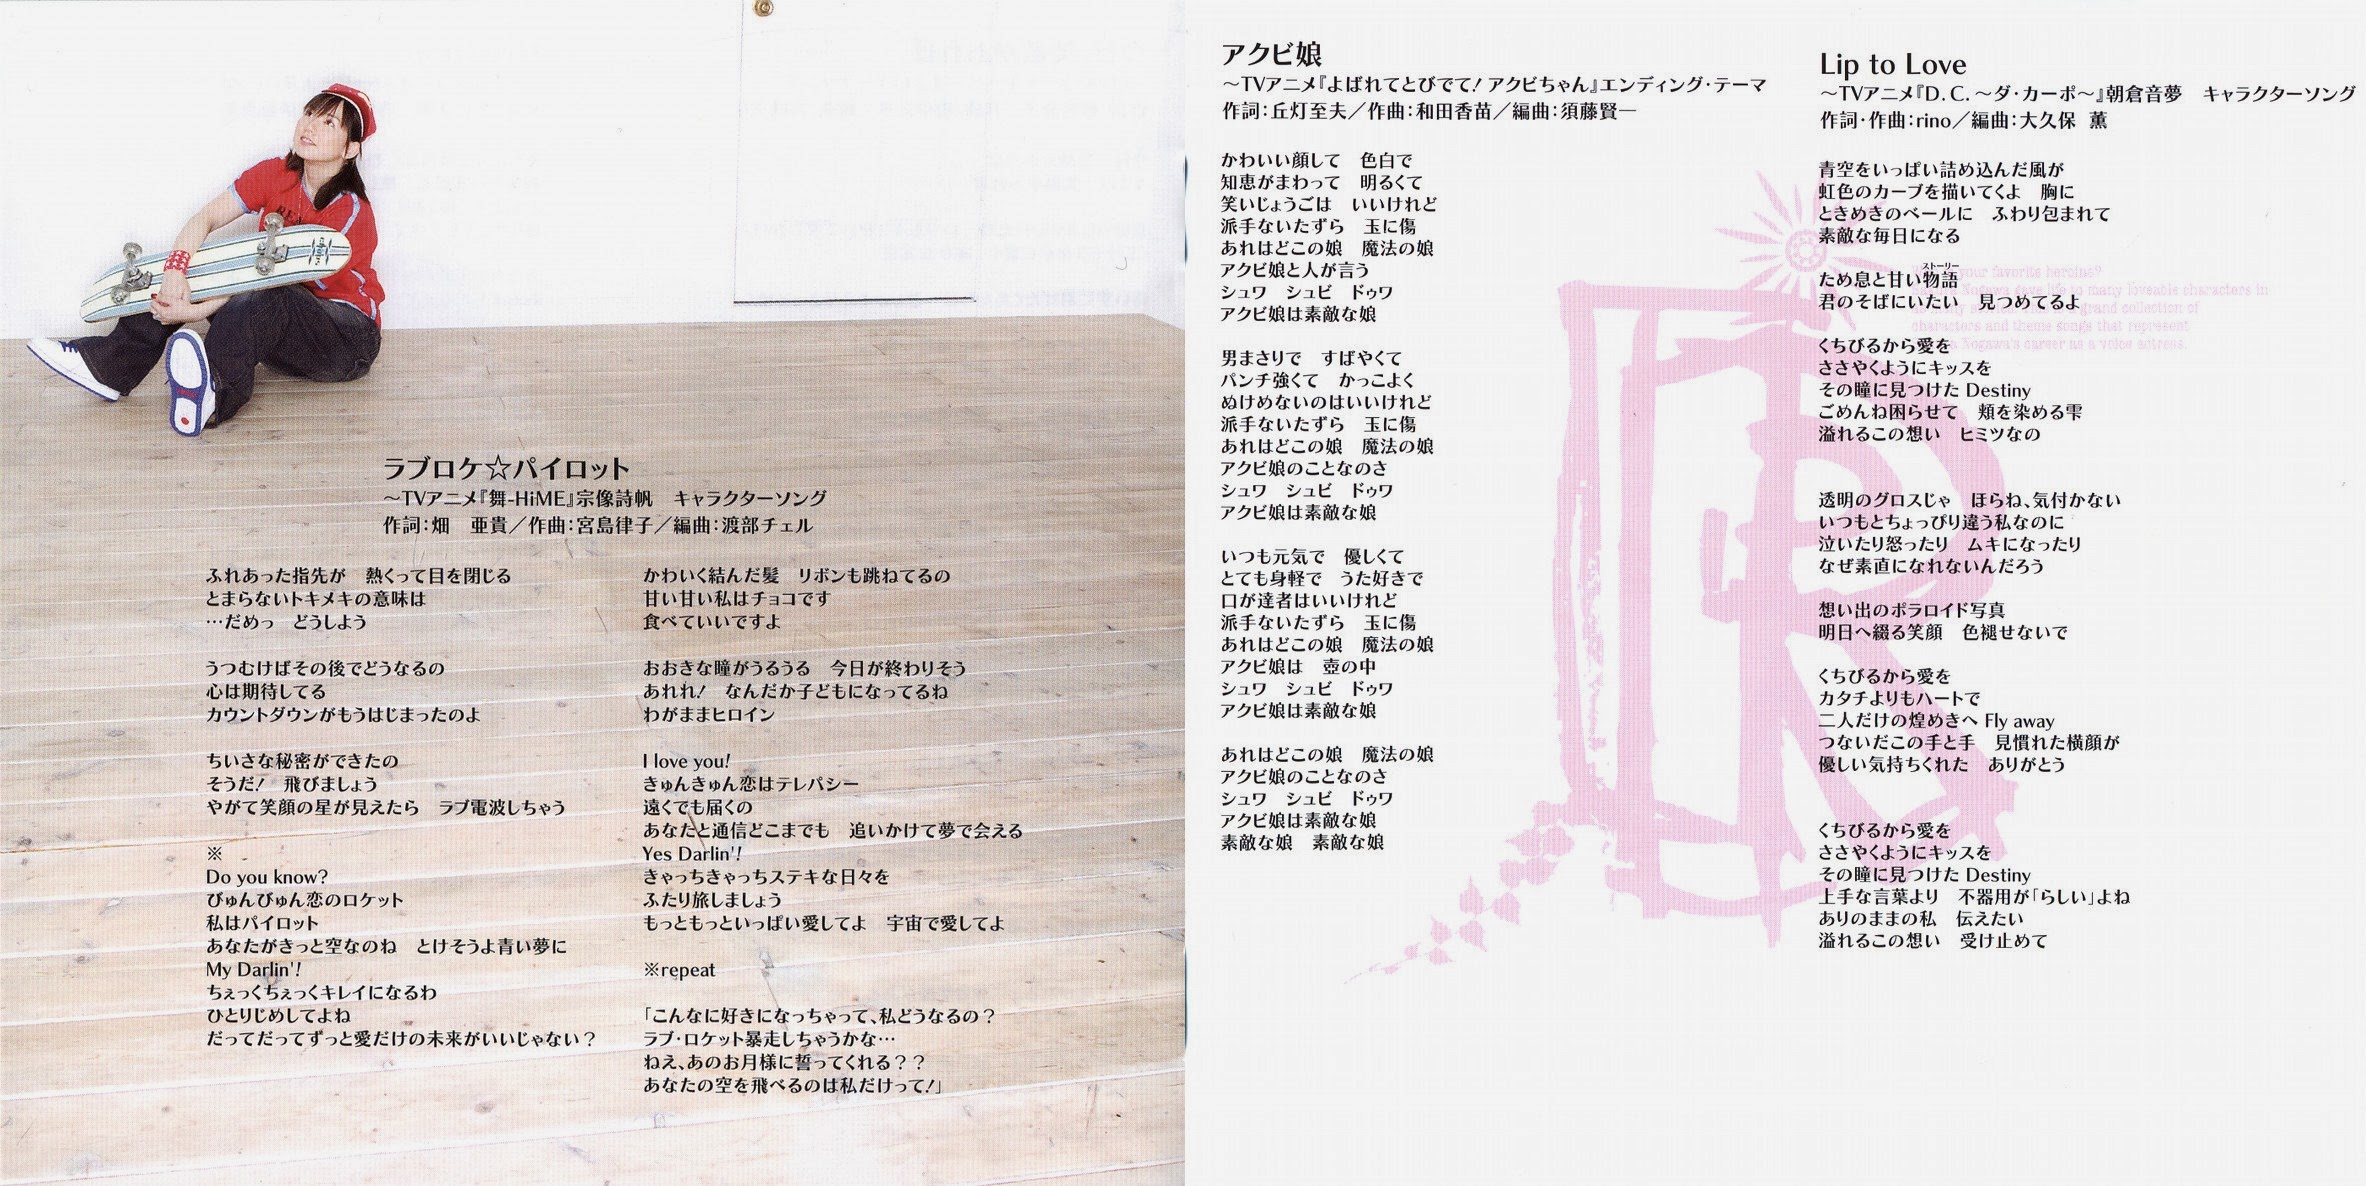 ラブロケ☆パイロット
～TVアニメ『舞-HiME』宗像詩帆　キャラクターソング
作詞：畑　亜貴／作曲：宮島律子／編曲：渡部チェル
ふれあった指先が　熱くって目を閉じる
とまらないトキメキの意味は
…だめっ　どうしよう
うつむけばその後でどうなるの
心は期待してる
カウントダウンがもうはじまったのよ
ちいさな秘密ができたの
そうだ！　飛びましょう
やがて笑顔の星が見えたら　ラブ電波しちゃう
※
Do you know?
びゅんびゅん恋のロケット
私はパイロット
あなたがきっと空なのね　とけそうよ青い夢に
My Darlin'!
ちぇっくちぇっくキレイになるわ
ひとりじめしてよね
だってだってずっと愛だけの未来がいいじゃない？
かわいく結んだ髪　リボンも跳ねてるの
甘い甘い私はチョコです
食べていいですよ
おおきな瞳がうるうる　今日が終わりそう
あれれ！　なんだか子どもになってるね
わがままヒロイン
I love you!
きゅんきゅん恋はテレパシー
遠くでも届くの
あなたと通信どこまでも　追いかけて夢で会える
Yes Darlin'!
きゃっちきゃっちステキな日々を
ふたり旅しましょう
もっともっといっぱい愛してよ　宇宙で愛してよ
※repeat
「こんなに好きになっちゃって、私どうなるの？
ラブ・ロケット暴走しちゃうかな…
ねえ、あのお月様に誓ってくれる？？
あなたの空を飛べるのは私だけって！」
アクビ娘
～TVアニメ『よばれてとびでて！アクビちゃん』エンディング・テーマ
作詞：丘灯至夫／作曲：和田香苗／編曲：須藤賢一
かわいい顔して　色白で
知恵がまわって　明るくて
笑いじょうごは　いいけれど
派手ないたずら　玉に傷
あれはどこの娘　魔法の娘
アクビ娘と人が言う
シュワ　シュビ　ドゥワ
アクビ娘は素敵な娘
男まさりで　すばやくて
パンチ強くて　かっこよく
ぬけめないのはいいけれど
派手ないたずら　玉に傷
あれはどこの娘　魔法の娘
アクビ娘のことなのさ
シュワ　シュビ　ドゥワ
アクビ娘は素敵な娘
いつも元気で　優しくて
とても身軽で　うた好きで
口が達者はいいけれど
派手ないたずら　玉に傷
あれはどこの娘　魔法の娘
アクビ娘は　壺の中
シュワ　シュビ　ドゥワ
アクビ娘は素敵な娘
あれはどこの娘　魔法の娘
アクビ娘のことなのさ
シュワ　シュビ　ドゥワ
アクビ娘は素敵な娘
素敵な娘　素敵な娘
Lip to Love
～TVアニメ『D.C.～ダ・カーポ～』朝倉音夢　キャラクターソング
作詞・作曲：rino／編曲：大久保　薫
青空をいっぱい詰め込んだ風が
虹色のカーブを描いてくよ　胸に
ときめきのベールに　ふわり包まれて
素敵な毎日になる
ストーリー
ため息と甘い物語
君のそばにいたい　見つめてるよ
くちびるから愛を
ささやくようにキッスを
その瞳に見つけた Destiny
ごめんね困らせて　頬を染める雫
溢れるこの想い　ヒミツなの
透明のグロスじゃ　ほらね、気付かない
いつもとちょっぴり違う私なのに
泣いたり怒ったり　ムキになったり
なぜ素直になれないんだろう
想い出のポラロイド写真
明日へ綴る笑顔　色褪せないで
くちびるから愛を
カタチよりもハートで
二人だけの煌めきへ Fly away
つないだこの手と手　見慣れた横顔が
優しい気持ちくれた　ありがとう
くちびるから愛を
ささやくようにキッスを
その瞳に見つけた Destiny
上手な言葉より　不器用が「らしい」よね
ありのままの私　伝えたい
溢れるこの想い　受け止めて
your favorite heroine?
Nogawa gave life to many loveable characters in
grand collection of
characters and theme songs that represent
Nogawa's career as a voice actress.